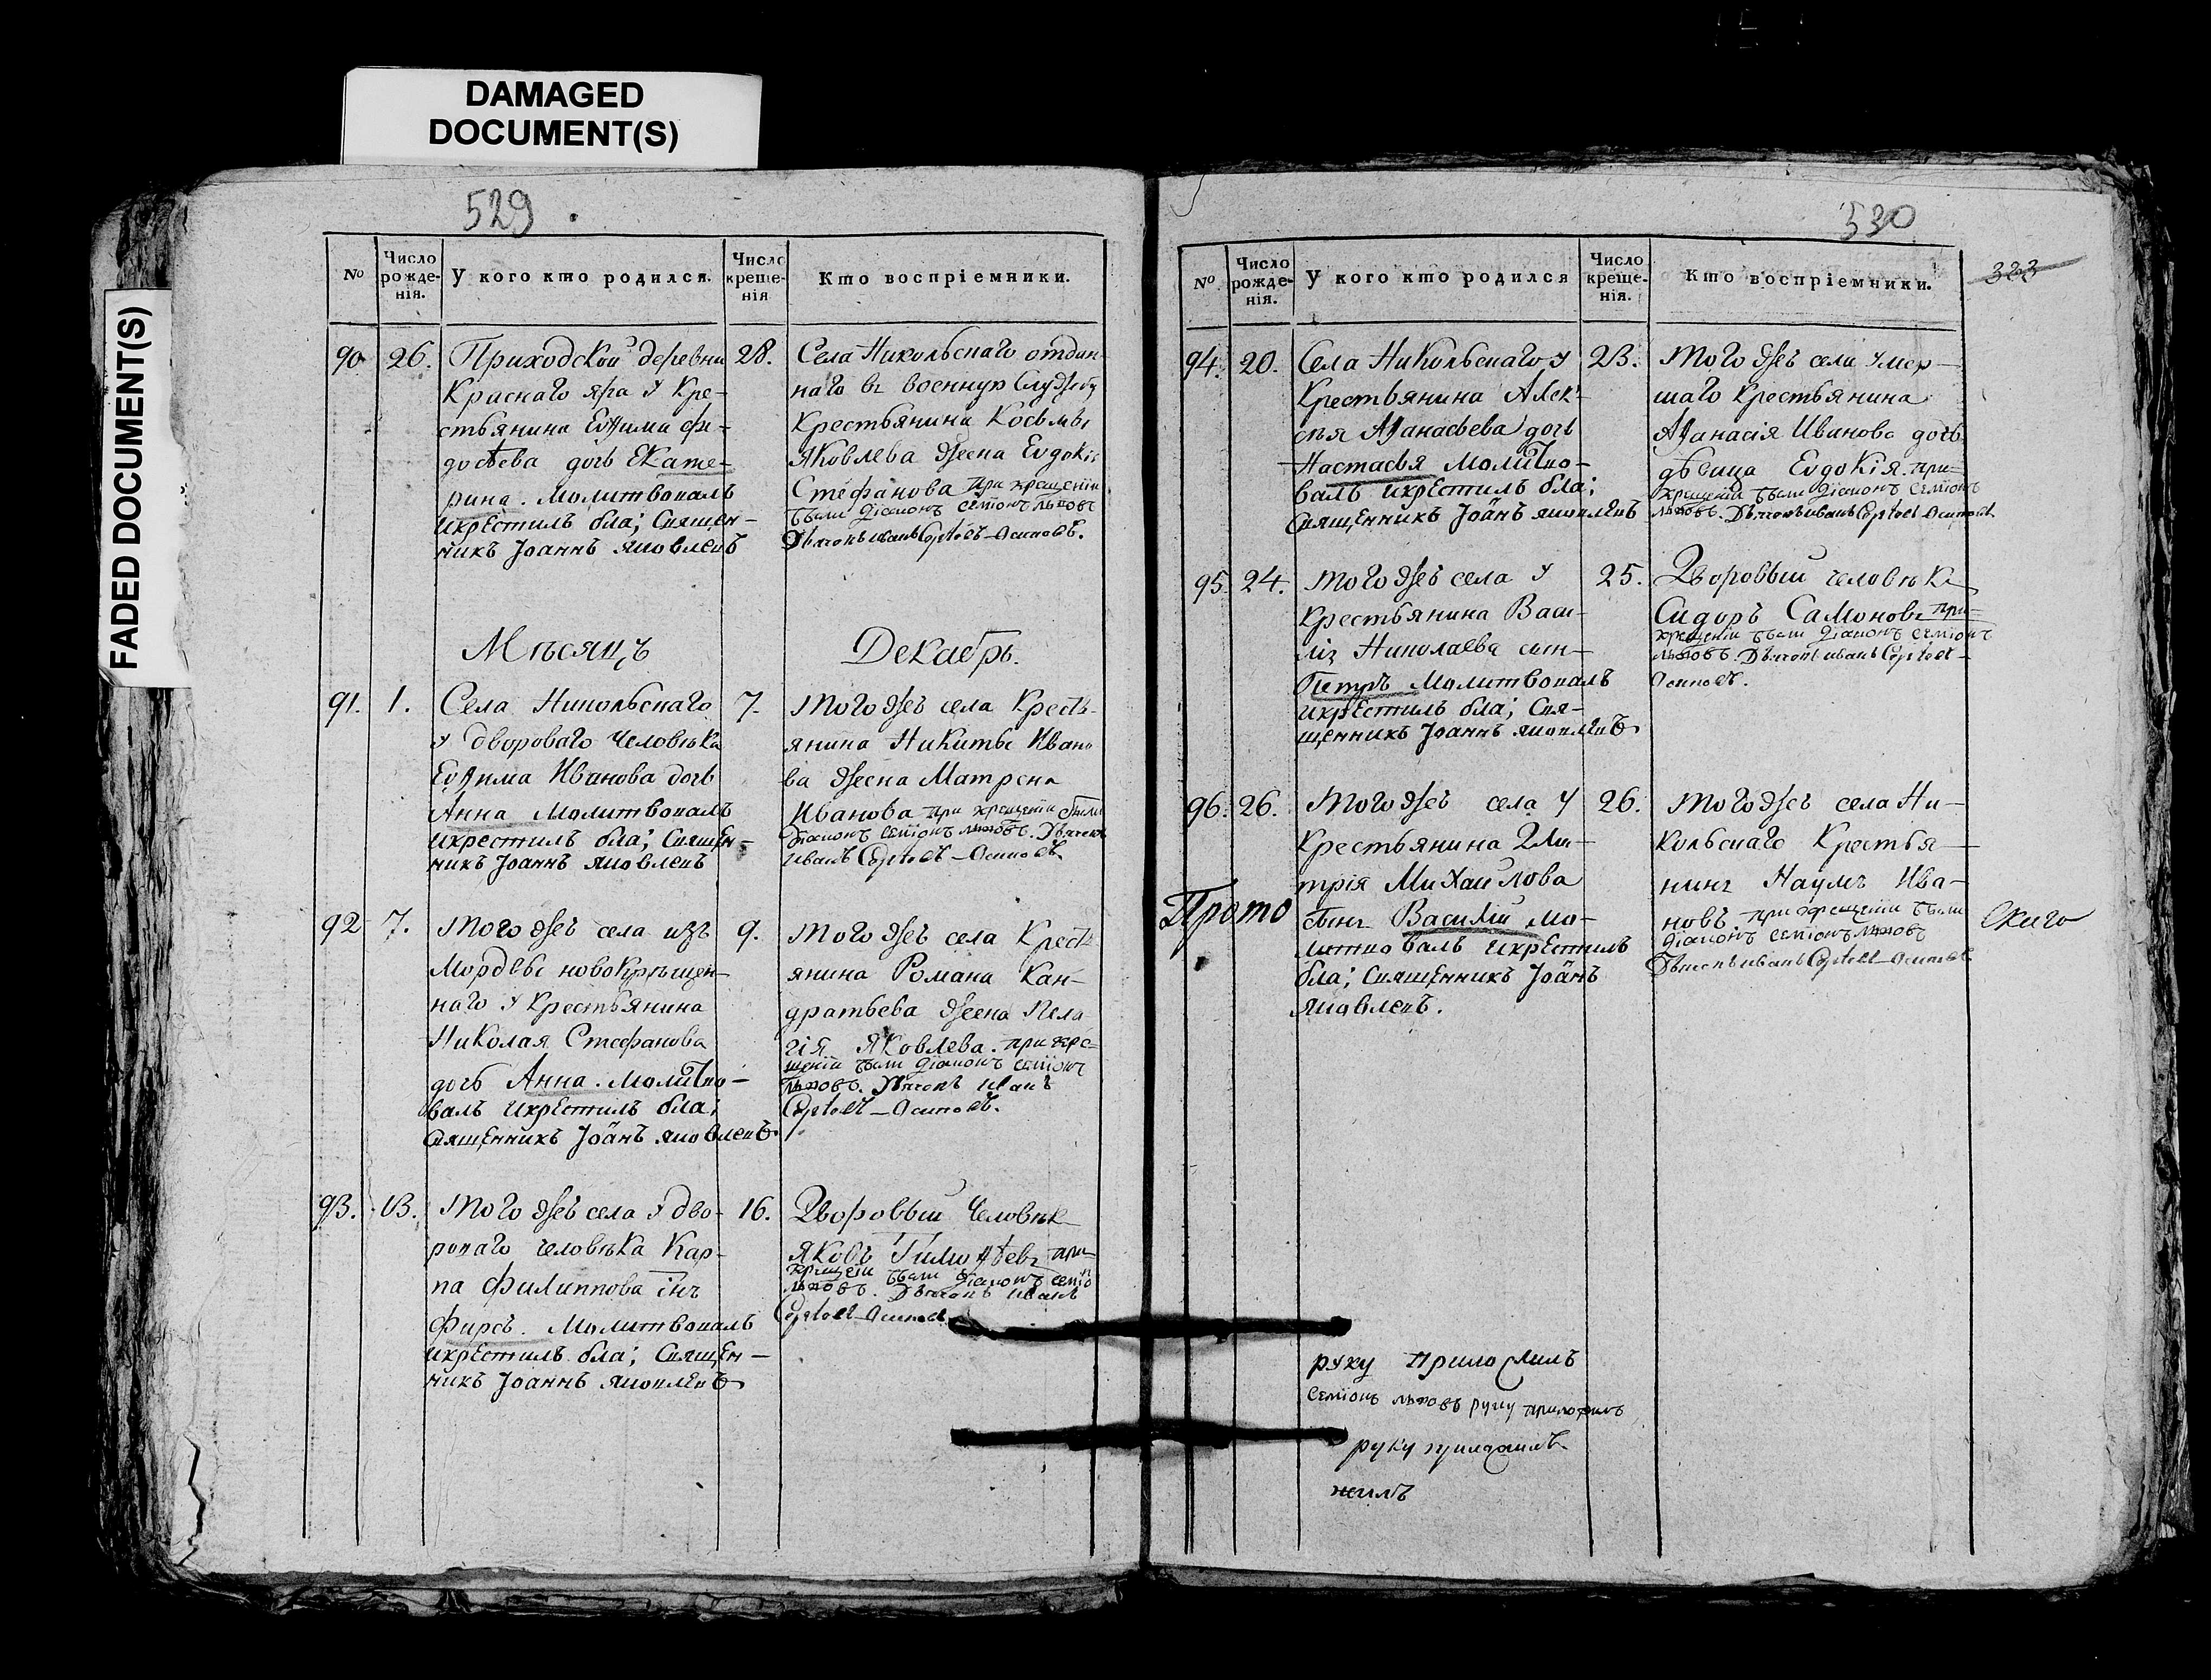 DAMAGED
DOCUMENT(S)
FADED DOCUMENT(S)
529
№
Число рожде-нія.
У кого кто родился.
Число креще-нія
Кто воспріемники.
90
26.
Приходской деревни
Краснаго яра у Кре-
стьянина Евѳима Фи-
дотѣева дочь Екате-
рина. Молитвовалъ
икрестилъ бла; Священ-
никъ Іоаннъ Яковлевъ
28.
Села Никольскаго отдан-
наго въ военную службу
Крестьянина Косьмы
Яковлева жена Евдокія
Стефанова при крещеніи
были діаконъ Семіонъ Львовъ
Дьячокъ иванъ Осиповъ.
Мѣсяцъ
Декабрь.
91.
1.
Села Никольскаго
у двороваго человѣка
Евѳима Иванова дочь
Анна Молитвовалъ
икрестилъ бла; Священ-
никъ Іоаннъ Яковлевъ
7.
Того жеъ села Кресть-
янина Никиты Ивано
ва жена Матрена
Иванова при крещеніи были
діаконъ Семіонъ Львовъ. Дьячекъ
иванъ Осиповъ.
92
7.
Того жеъ села изъ
Мордвы новокрещен-
наго у крестьянина
Николая Стефанова
дочь Анна. Молитво-
валъ икрестилъ бла;
Священникъ Іоанъ Яковлевъ
9.
Того жеъ села Кресть
янина Романа Кан-
дратьева жена Пела
гія Яковлева. при кре-
щеніи были діаконъ Семіонъ
Львовъ. Дьячокъ иванъ
Осиповъ.
93.
13.
Того жеъ села у дво-
роваго человѣка Кар-
па Филиппова сынъ
Фирсъ. Молитвовалъ
икрестилъ бла; Священ-
никъ Іоаннъ Яковлевъ
16.
Дворовый человѣк
Яковъ Тимоѳѣевъ при-
крещеніи были діаконъ Семіонъ
Львовъ. Дьячокъ иванъ
Осиповъ
530
323
№
Число рожде-нія.
У кого кто родился
Число креще-нія.
Кто воспріемники.
94.
20.
Села Никольскаго у
Крестьянина Алек-
сѣя Аѳанасьева дочь
Настасья Молитво-
валъ икрестилъ бла;
Священникъ Іоанъ Яковлевъ
23.
Того жеъ села умер-
шаго Крестьянина
Аѳанасія Иванова дочь
дѣвица Евдокія. при-
крещеніи были діаконъ Семіонъ
Львовъ. Дьячокъ иванъ Осиповъ.
95.
24.
Того жеъ села у
крестьянина Васи-
лія Николаева сын-
Петръ Молитвовалъ
икрестилъ бла; Свя-
щенникъ Іоаннъ Яковлевъ
25.
Дворовый человѣкъ
Сидоръ Самоновъ при-
крещеніи были діаконъ Семіонъ
Львовъ. Дьячокъ иванъ
Осиповъ.
96.
26.
Того жеъ села у
Крестьянина Дми-
трія Михайлова
сынъ Василій Мо-
литвовалъ икрестилъ
бла; Священникъ Іоанъ
Яковлевъ.
26.
Того жеъ села Ни-
кольскаго Крестья-
нинъ Наумъ Ива-
новъ при крещеніи были
діаконъ Семіонъ Львовъ
Дьячокъ иванъ Осиповъ
Прото
руку приложилъ
Семіонъ Львовъ руку приложилъ
руку приложилъ
жилъ